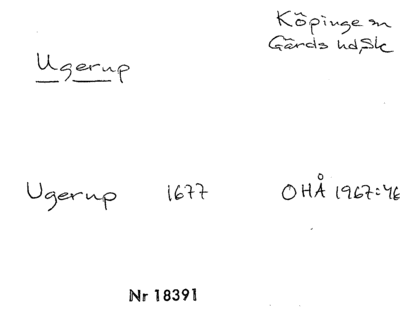 Köpinge sn
Gärds hd, Sk
Ugerup
Ugerup 1677 OHÅ 1967:46
Nr 18391